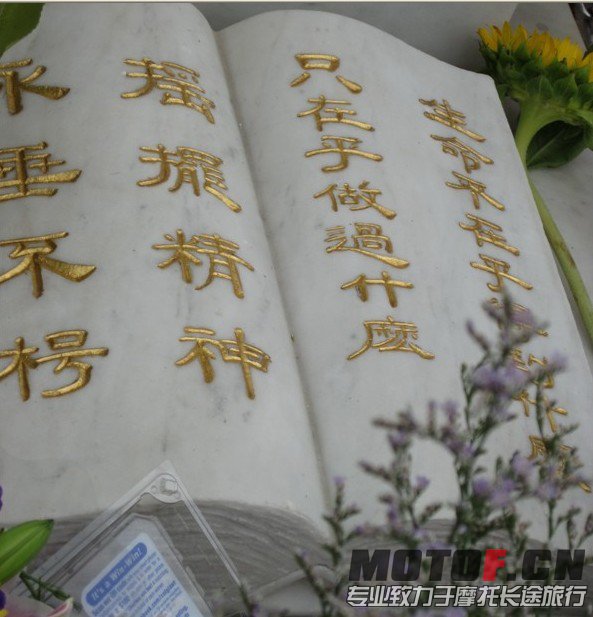 生命不在乎得到什麼
只在乎做過什麼
搖擺精神
永垂不朽
It's a Win-Win!
MOTOF.CN
专业致力于摩托长途旅行